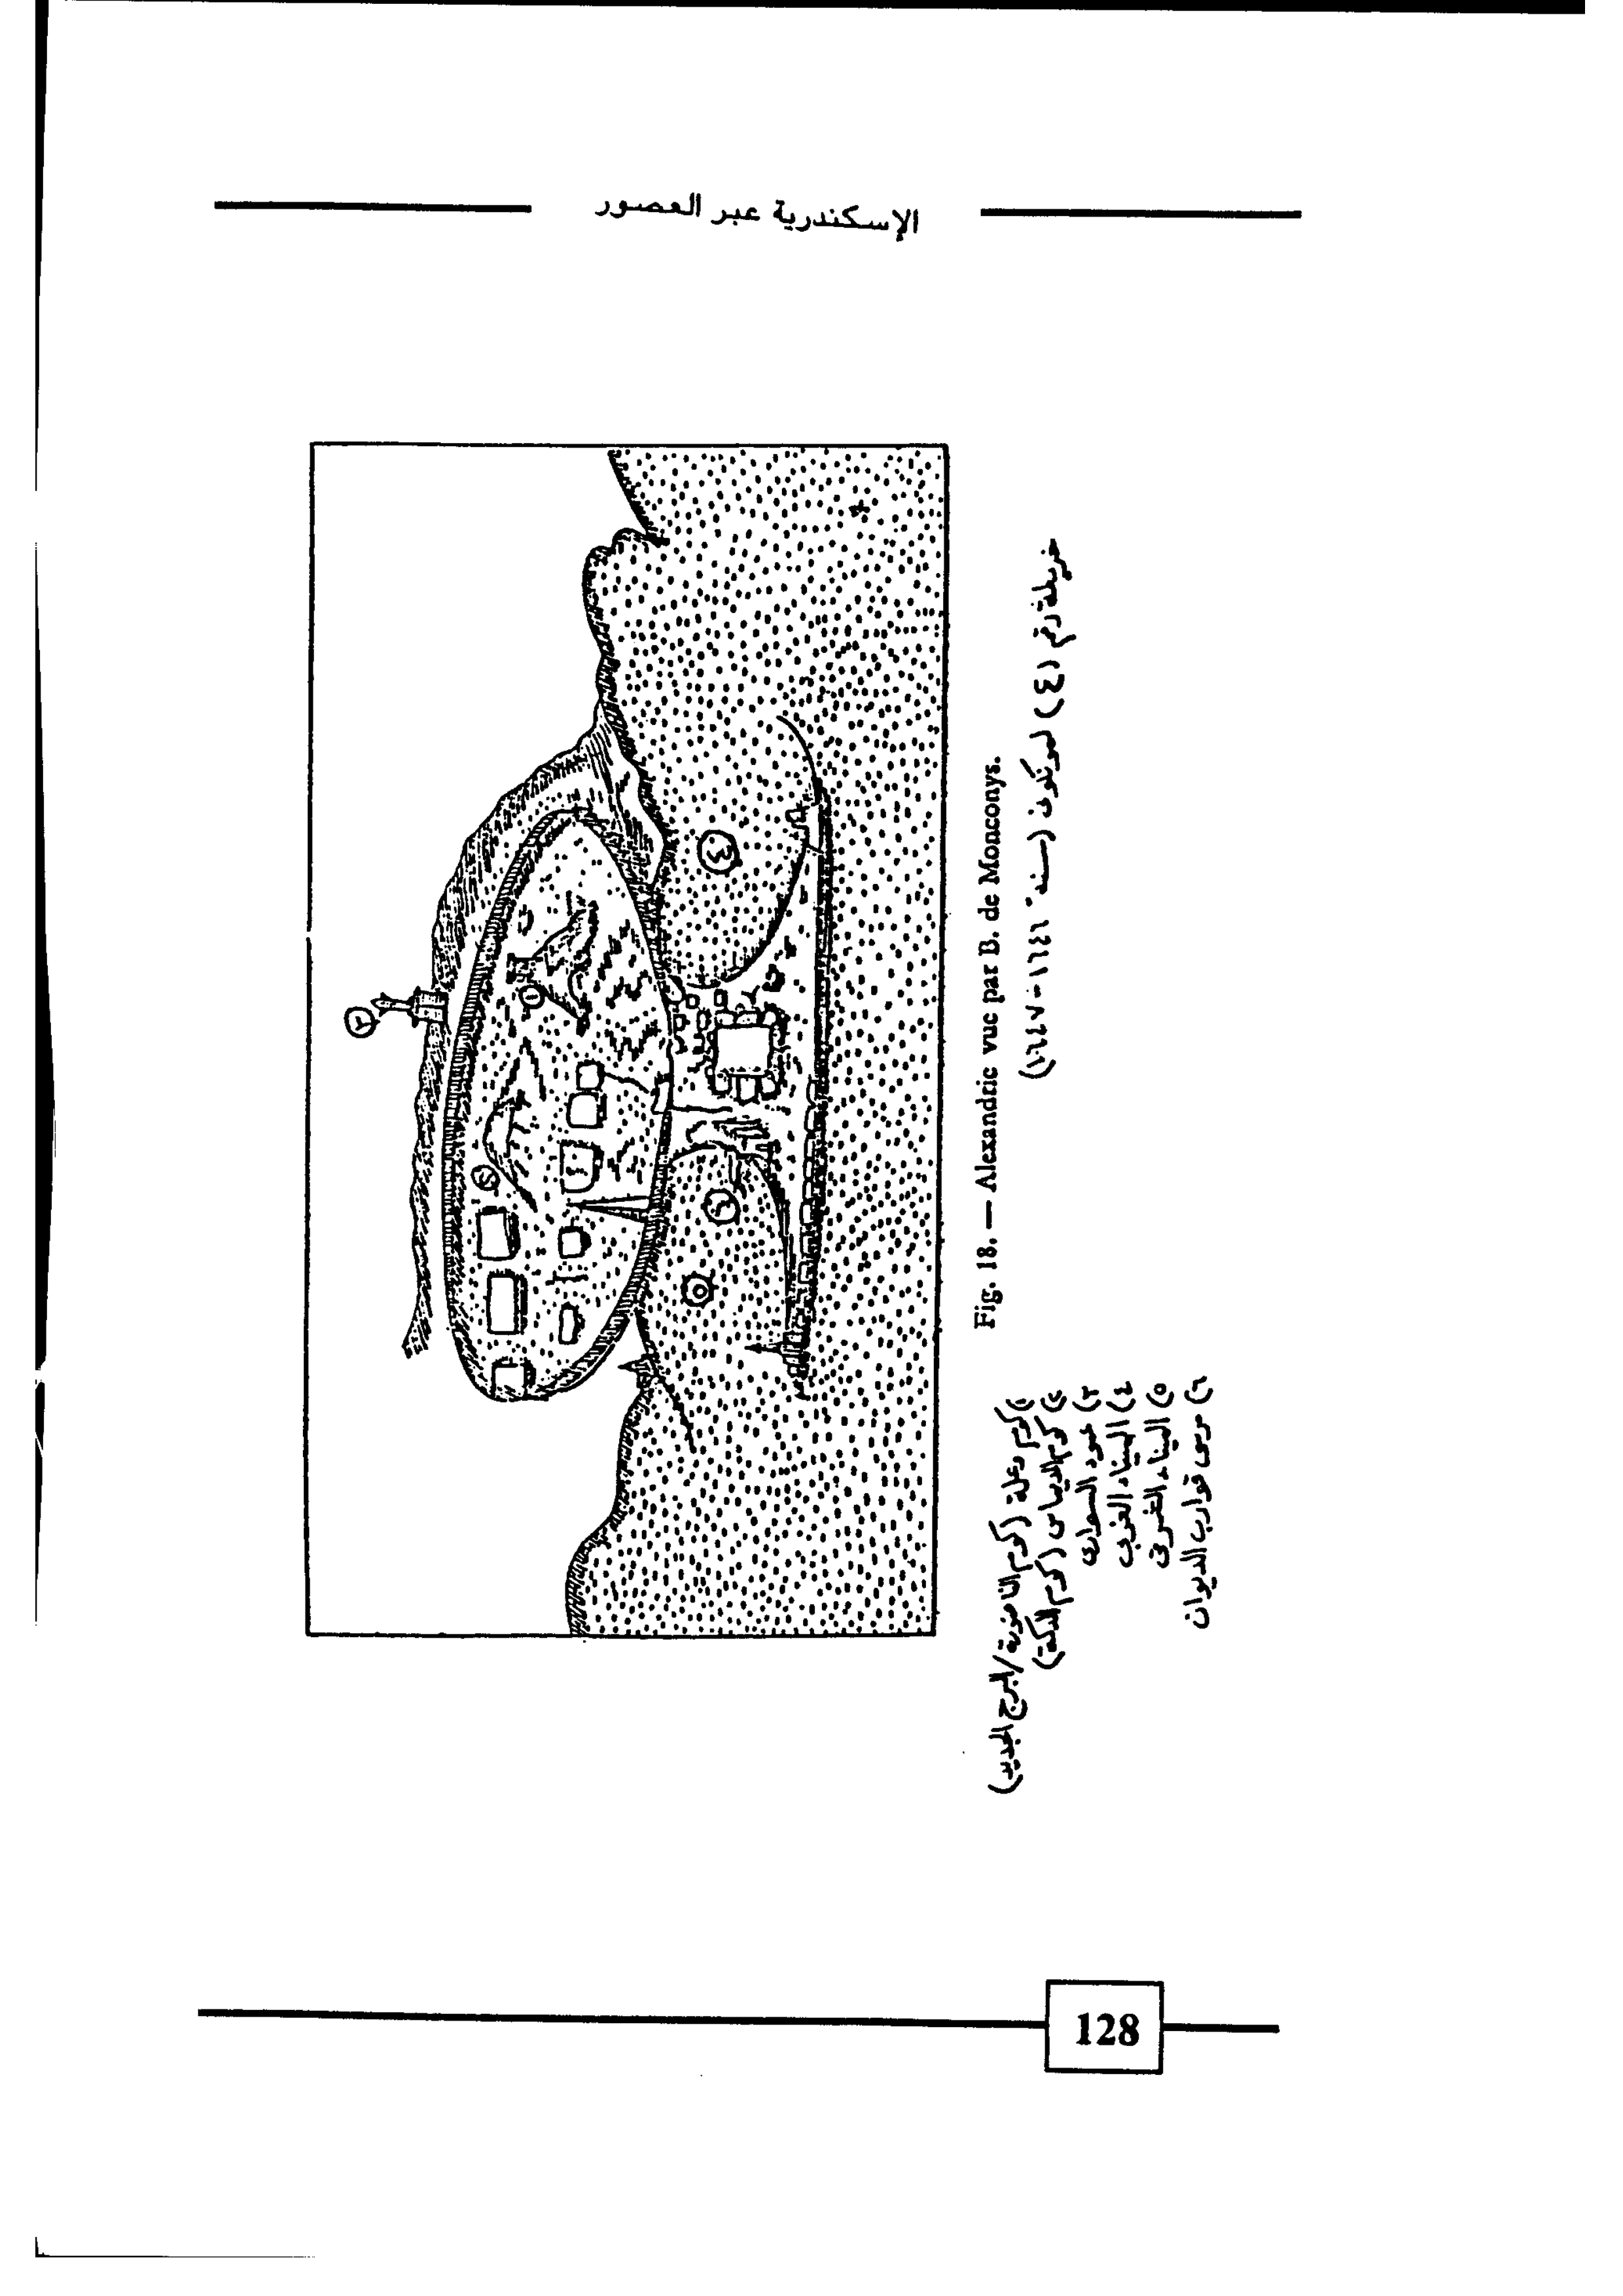 الإسكندرية عبر العصور
١
٢
٣
٤
٥
٦
Fig. 18. — Alexandrie vue par B. de Monconys.
خريطة رقم (٤) لمونكونى (سنة ١٦٤٦-١٦٤٧)
١) كوم وعلة (كوم الناضورة/البرج الجديد)
٢) كوم الديماس (كوم الدكة)
٣) عمود السوارى
٤) الميناء الغربى
٥) الميناء الشرقى
٦) مرسى قوارب الديوان
128